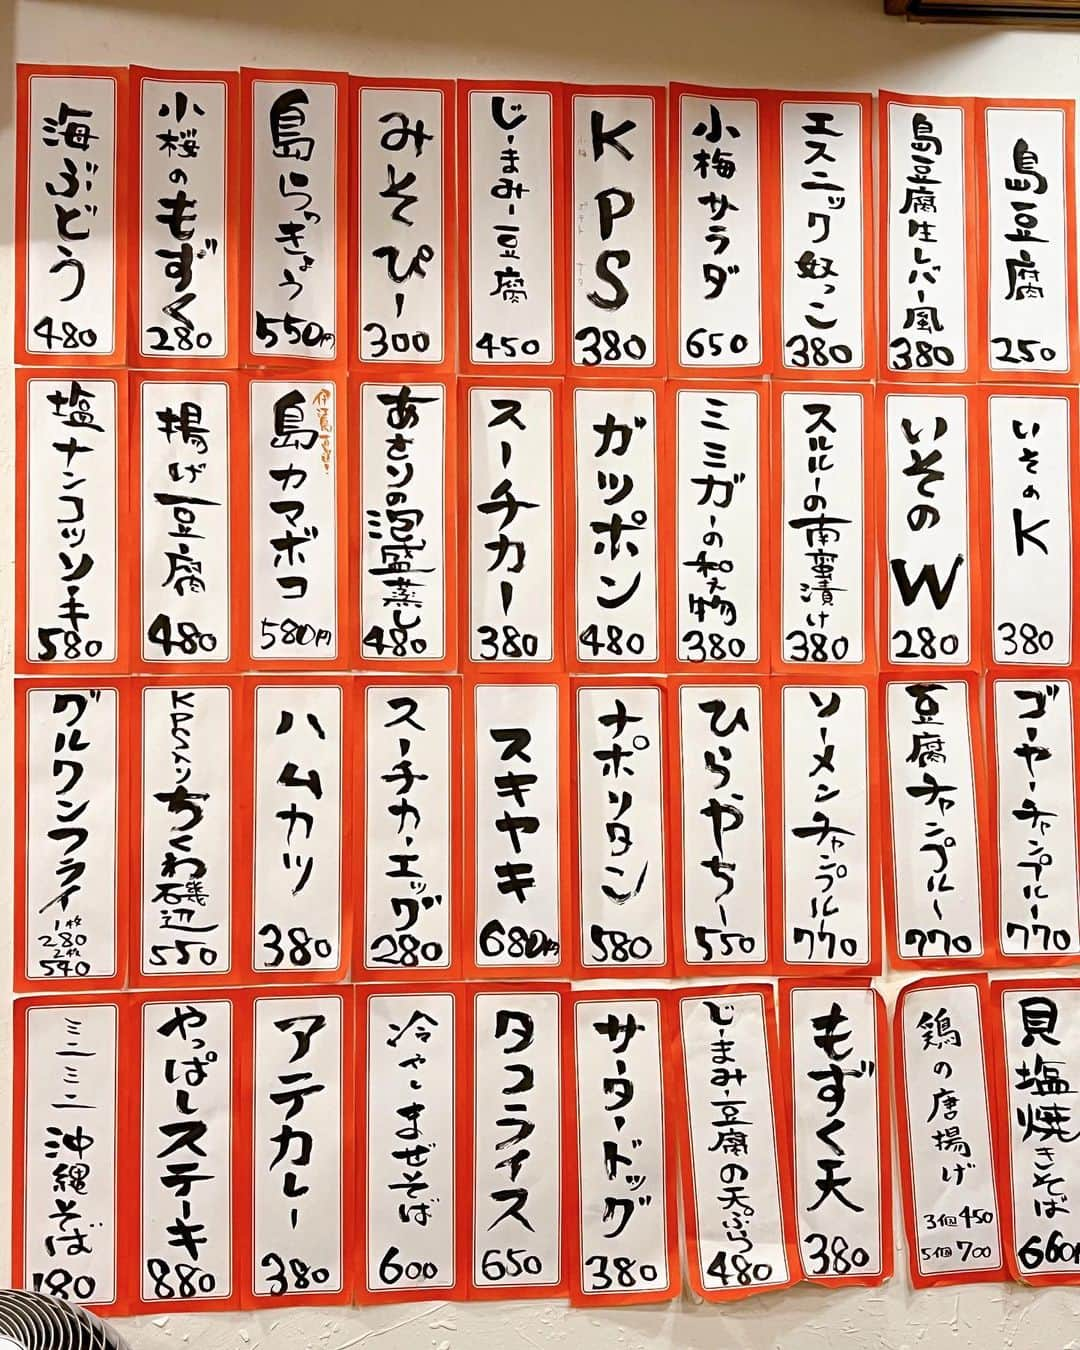 島豆腐
250
島豆腐生レバー風
380
エスニック奴っこ
380
小梅サラダ
650
KPS
小梅
ポテト
サラダ
380
じーまみー豆腐
450
みそぴー
300
島らっきょう
550円
小桜のもずく
280
海ぶどう
480
いそのK
380
いそのW
280
スルルーの南蛮漬け
380
ミミガーの和え物
380
ガツポン
480
スーチカー
380
あさりの泡盛蒸し
480
島カマボコ
580円
揚げ豆腐
480
塩ナンコツソーキ
580
ゴーヤーチャンプルー
770
豆腐チャンプルー
770
ソーメンチャンプルー
770
ひらやちー
550
ナポリタン
580
スキヤキ
680円
スーチカーエッグ
280
ハムカツ
380
KPSイン
ちくわ磯辺
550
グルクンフライ
1枚
280
2枚
540
貝塩焼きそば
660円
鶏の唐揚げ
3個450
5個700
もずく天
380
じーまみー豆腐の天ぷら
480
サータードッグ
380
タコライス
650
冷やしまぜそば
600
アテカレー
380
やっぱしステーキ
880
ミニミニ沖縄そば
180